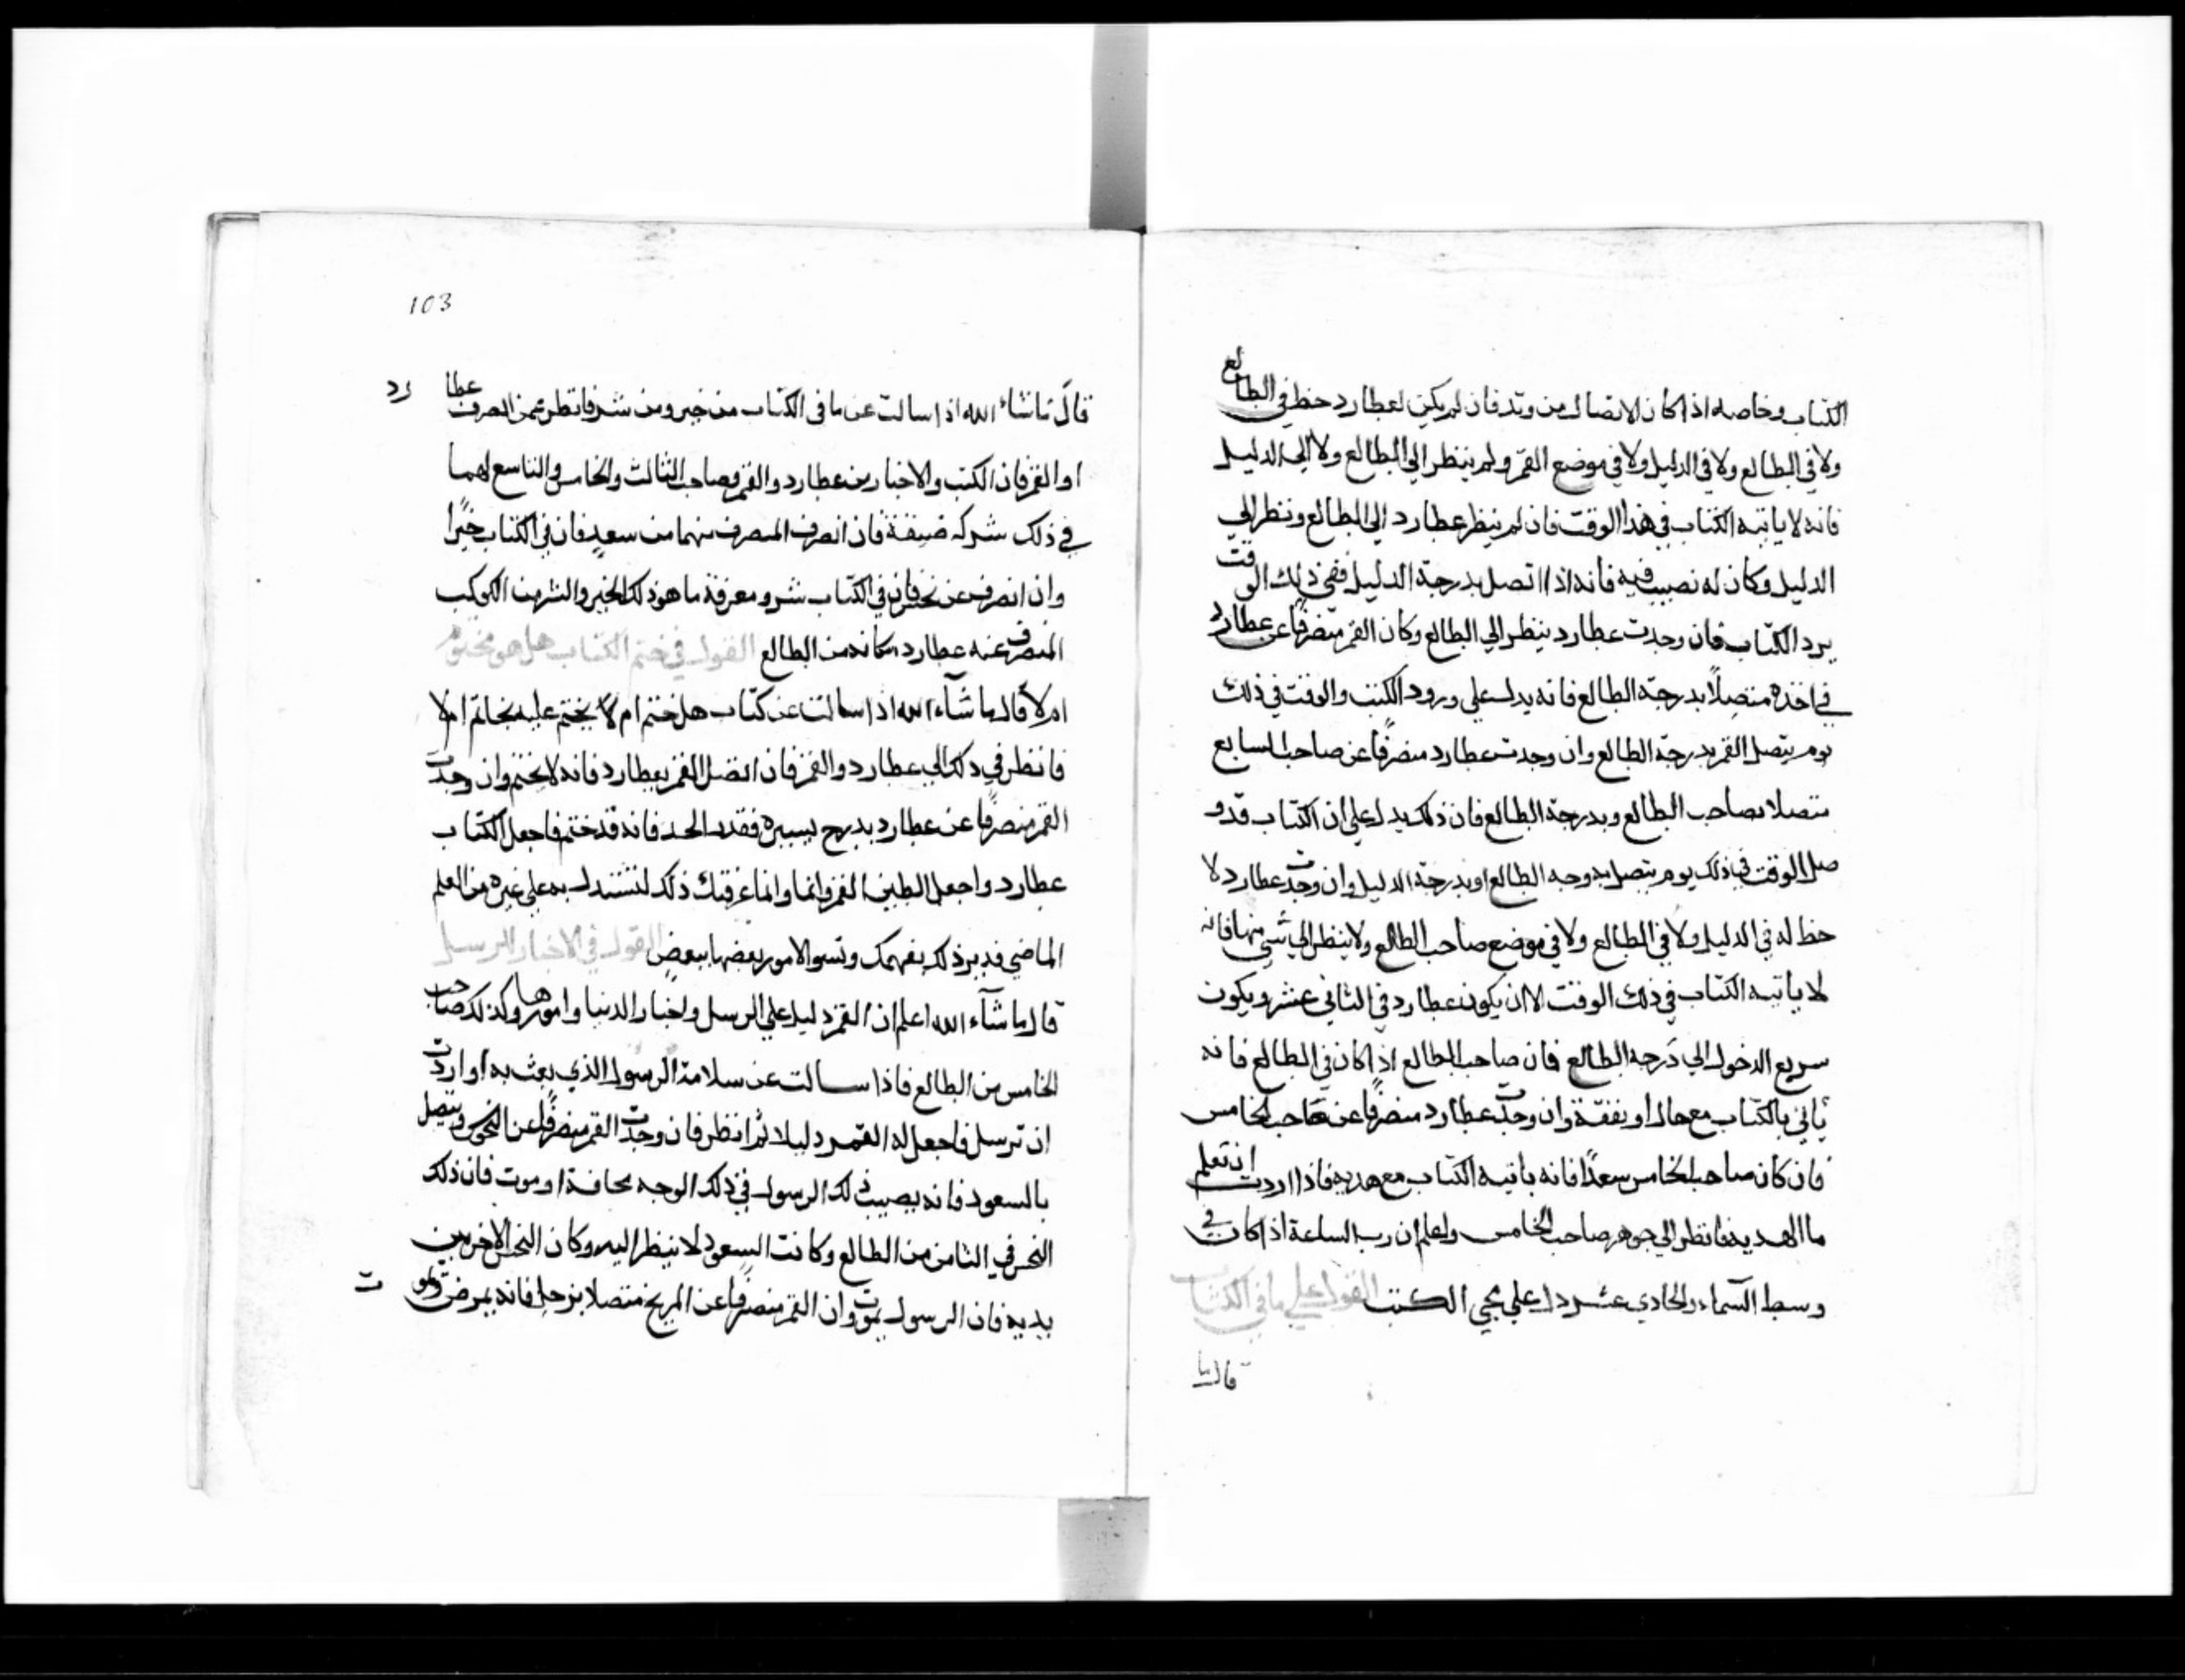 الكتاب وخاصه اذا كان الاتصال من وتد فان لم يكن لعطارد حظ في الطالع
ولا في الطالع ولا في الدليل ولا في موضع القمر ولم ينظر الي الطالع ولا الي الدليل
فانه لا ياتيه الكتاب في هذا الوقت فان لم ينظر عطارد الي الطالع ونظر الي
الدليل وكان له نصيب فيه فانه اذا اتصل بدرجة الدليل ففي ذلك الوقت
يرد الكتاب فان وجدت عطارد ينظر الي الطالع وكان القمر متصرفًا عن عطارد
في اخذه متصلًا بدرجة الطالع فانه يدل علي ورود الكتب والوقت في ذلك
يوم يتصل القمر بدرجة الطالع وان وجدت عطارد منصرفًا عن صاحب السابع
متصلا بصاحب الطالع وبدرجة الطالع فان ذلك يدل علي ان الكتاب قد و
صل الوقت في ذلك يوم يتصل بدوجه الطالع او بدرجة الدليل وان وجدت عطارد لا
حظ له في الدليل ولا في الطالع ولا في موضع صاحب الطالع ولا ينظر الي شي منها فانه
لا ياتيه الكتاب في ذلك الوقت الا ان يكون عطارد في الثاني عشر ويكون
سريع الدخول الي درجه الطالع فان صاحب الطالع اذا كان في الطالع فانه
ياتي بالكتاب مع مال او نفقة وان وجدت عطارد منصرفًا عن صاحب الخامس
فان كان صاحب الخامس سعدًا فانه ياتيه الكتاب مع هديه فاذا اردت ان تعلم
ما الهديه فانظر الي جوهر صاحب الخامس واعلم ان رب الساعة اذا كان في
وسط السماء والحادي عشر دل علي مجي الكتب القول علي ما في الكتاب
قال ما
103
قال ماشاء الله اذا سالت عن ما في الكتاب من خير ومن شر فانظر عمن انصرف عطارد
او القمر فان الكتب والاخبار من عطارد والقمر وصاحب الثالث والخامس والتاسع لهما
في ذلك شركه ضعيفة فان انصرف المنصرف منهما من سعدٍ فان في الكتاب خيرًا
وان انصرف عن نحس فان في الكتاب شر ومعرفة ما هو ذلك الخير والشر من الكوكب
المنصرف عنه عطارد مكانه من الطالع القول في ختم الكتاب هل هو مختوم
ام لا قال ما شآء الله اذا سالت عن كتاب هل ختم ام لا يختم عليه بخاتم ام لا
فانظر في ذلك الي عطارد والقمر فان اتصل القمر بعطارد فانه لا يختم وان وجدت
القمر منصرفًا عن عطارد بدرج يسيره فقدر الحد فانه قد ختم فاجعل الكتاب
عطارد واجعل الطين القمر وانما وانما عرفتك ذلك لتستدل به علي غيره من العلم
الماضي فدبر ذلك بفهمك وتسو الامور بعضها ببعضٍ القول في الاخبار والرسل
قال ما شآء الله اعلم ان القمر دليل علي الرسل واخبار الدنيا وامورها وكذلك صاحب
الخامس من الطالع فاذا سالت عن سلامة الرسول الذي بعث به او اردت
ان ترسل فاجعل له القمر دليلا ثم انظر فان وجدت القمر منصرفًا عن النحس ويتصل
بالسعود فانه يصيب ذلك الرسول في ذلك الوجه مخافة او موت فان ذلك
النحس في الثامن من الطالع وكانت السعود لا ينظر اليه وكان النحس الاخر بين
يديه فان الرسول يموت وان القمر منصرفًا عن المريخ متصلا بزحل فانه يمرض ولو ت